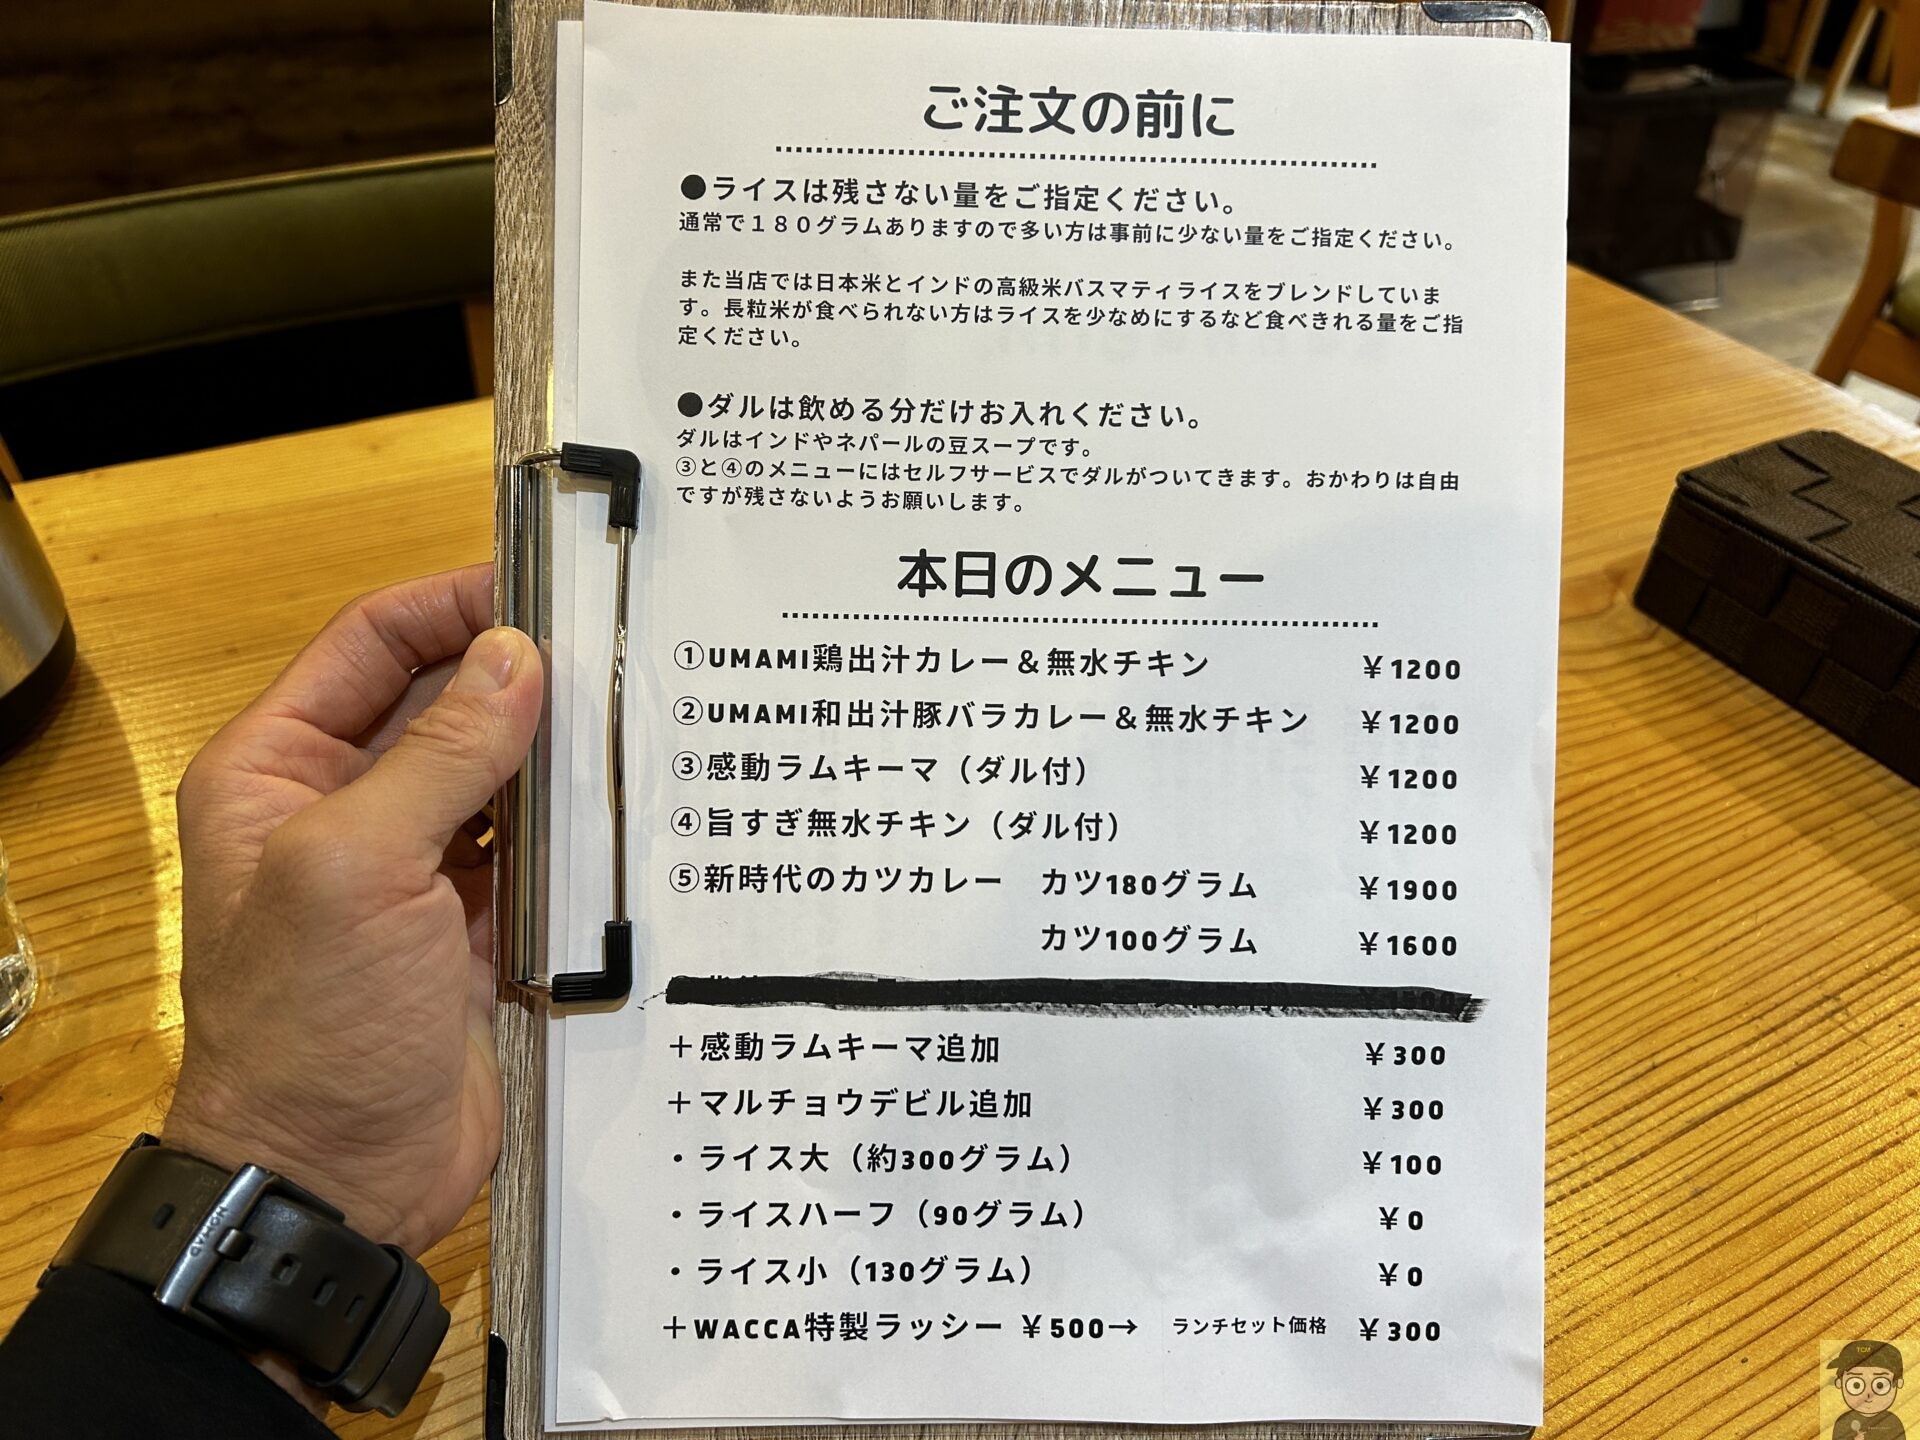 ご注文の前に
●ライスは残さない量をご指定ください。
通常で１８０グラムありますので多い方は事前に少ない量をご指定ください。
また当店では日本米とインドの高級米バスマティライスをブレンドしていま
す。長粒米が食べられない方はライスを少なめにするなど食べきれる量をご指
定ください。
●ダルは飲める分だけお入れください。
ダルはインドやネパールの豆スープです。
③と④のメニューにはセルフサービスでダルがついてきます。おかわりは自由
ですが残さないようお願いします。
本日のメニュー
①UMAMI鶏出汁カレー＆無水チキン ￥1200
②UMAMI和出汁豚バラカレー＆無水チキン ￥1200
③感動ラムキーマ（ダル付） ￥1200
④旨すぎ無水チキン（ダル付） ￥1200
⑤新時代のカツカレー カツ180グラム ￥1900
カツ100グラム ￥1600
＋感動ラムキーマ追加 ￥300
＋マルチョウデビル追加 ￥300
・ライス大（約300グラム） ￥100
・ライスハーフ（90グラム） ￥0
・ライス小（130グラム） ￥0
＋WACCA特製ラッシー ￥500→ ランチセット価格 ￥300
NOMAD
TCM